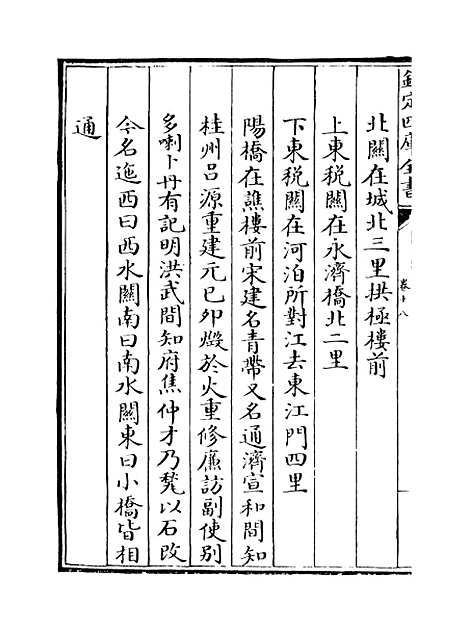 欽定四庫全書
卷十八
北關在城北三里拱極樓前
上東税關在永濟橋北二里
下東税關在河泊所對江去東江門四里
陽橋在譙樓前宋建名青帶又名通濟宣和間知
桂州吕源重建元已卯燬於火重修廉訪副使别
多喇卜丹有記明洪武間知府焦仲才乃甃以石改
今名迤西曰西水關南曰南水關東曰小橋皆相
通